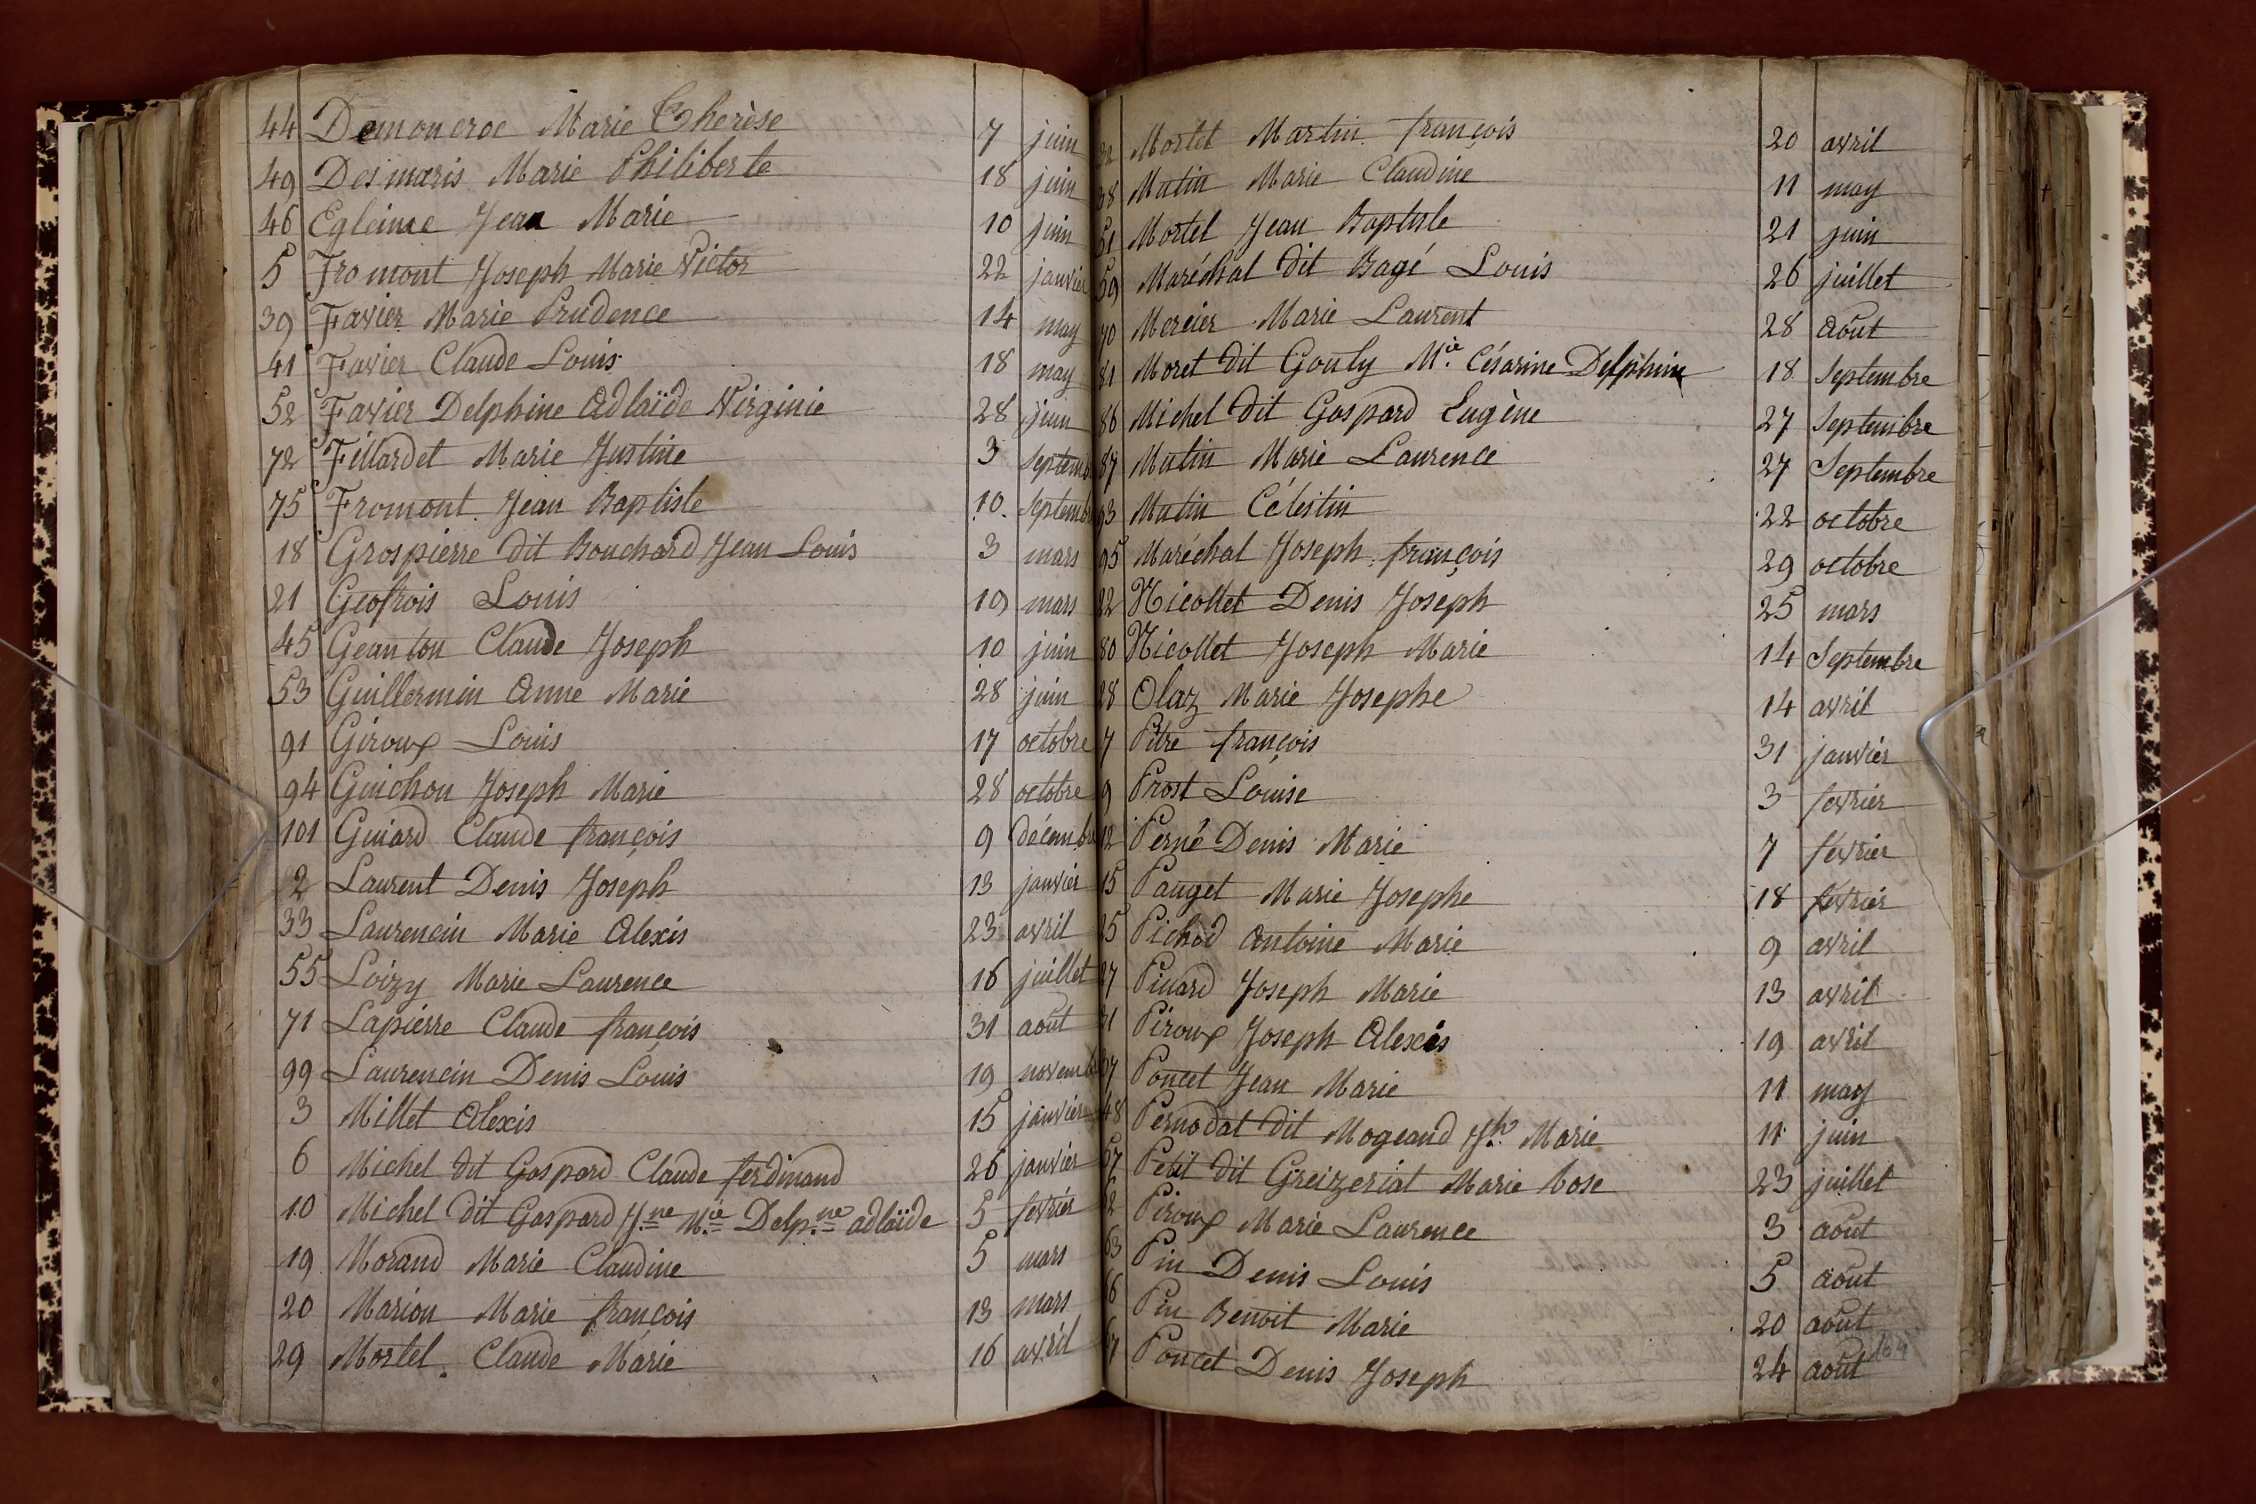 44 Demoncroc Marie Therèse 7 juin
49 Desmaris Marie Philiberte 18 juin
46 Egleime Jean Marie 10 juin
5 Fromont Joseph Marie Victor 22 janvier
39 Favier Marie Prudence 14 may
41 Favier Claude Louis 18 may
52 Favier Delphine Adlaïde Virginie 28 juin
72 Fillardet Marie Justine 3 septemb
75 Fromont Jean Baptiste 10 septemb
18 Grospierre dit Bouchard Jean Louis 3 mars
21 Geofrois Louis 19 mars
45 Geanton Claude Joseph 10 juin
53 Guillermin Anne Marie 28 juin
91 Giroux Louis 17 octobre
94 Guichon Joseph Marie 28 octobre
101 Guiard Claude françois 9 décemb
2 Laurent Denis Joseph 13 janvier
33 Laurencin Marie Alexis 23 avril
55 Loizy Marie Laurence 16 juillet
71 Lapierre Claude françois 31 aout
99 Laurencin Denis Louis 19 novemb
3 Millet Alexis 15 janvier
6 Michel dit Gaspard Claude ferdinand 26 janvier
10 Michel dit Gaspard Jne Mie Delpne adlaïde 5 février
19 Morand Marie Claudine 5 mars
20 Marion Marie françois 13 mars
29 Mortel Claude Marie 16 avril
32 Mortel Martin françois 20 avril
38 Mutin Marie Claudine 11 may
51 Mortel Jean Baptiste 21 juin
59 Maréchal dit Bagé Louis 26 juillet
70 Mercier Marie Laurent 28 Aout
81 Moret dit Gouly Mie Césarine Delphine 18 Septembre
86 Michel dit Gaspard Eugène 27 Septembre
87 Mutin Marie Laurence 27 Septembre
93 Mutin Célestin 22 octobre
95 Maréchal Joseph françois 29 octobre
22 Nicollet Denis Joseph 25 mars
80 Nicollet Joseph Marie 14 Septembre
28 Olaz Marie Josephe 14 avril
7 Pitre françois 31 janvier
9 Prost Louise 3 fevrier
12 Perné Denis Marie 7 février
15 Pauget Marie Josephe 18 février
25 Pichod Antoine Marie 9 avril
27 Pinard Joseph Marie 13 avril
31 Piroux Joseph Alexis 19 avril
37 Poncet Jean Marie 11 may
48 Pernodat dit Mogeand Jh Marie 11 juin
57 Petit dit Greizeriat Marie Rose 23 juillet
62 Piroux Marie Laurence 3 aout
63 Pin Denis Louis 5 aout
66 Pin Benoit Marie 20 aout
67 Poncet Denis Joseph 24 aout
164